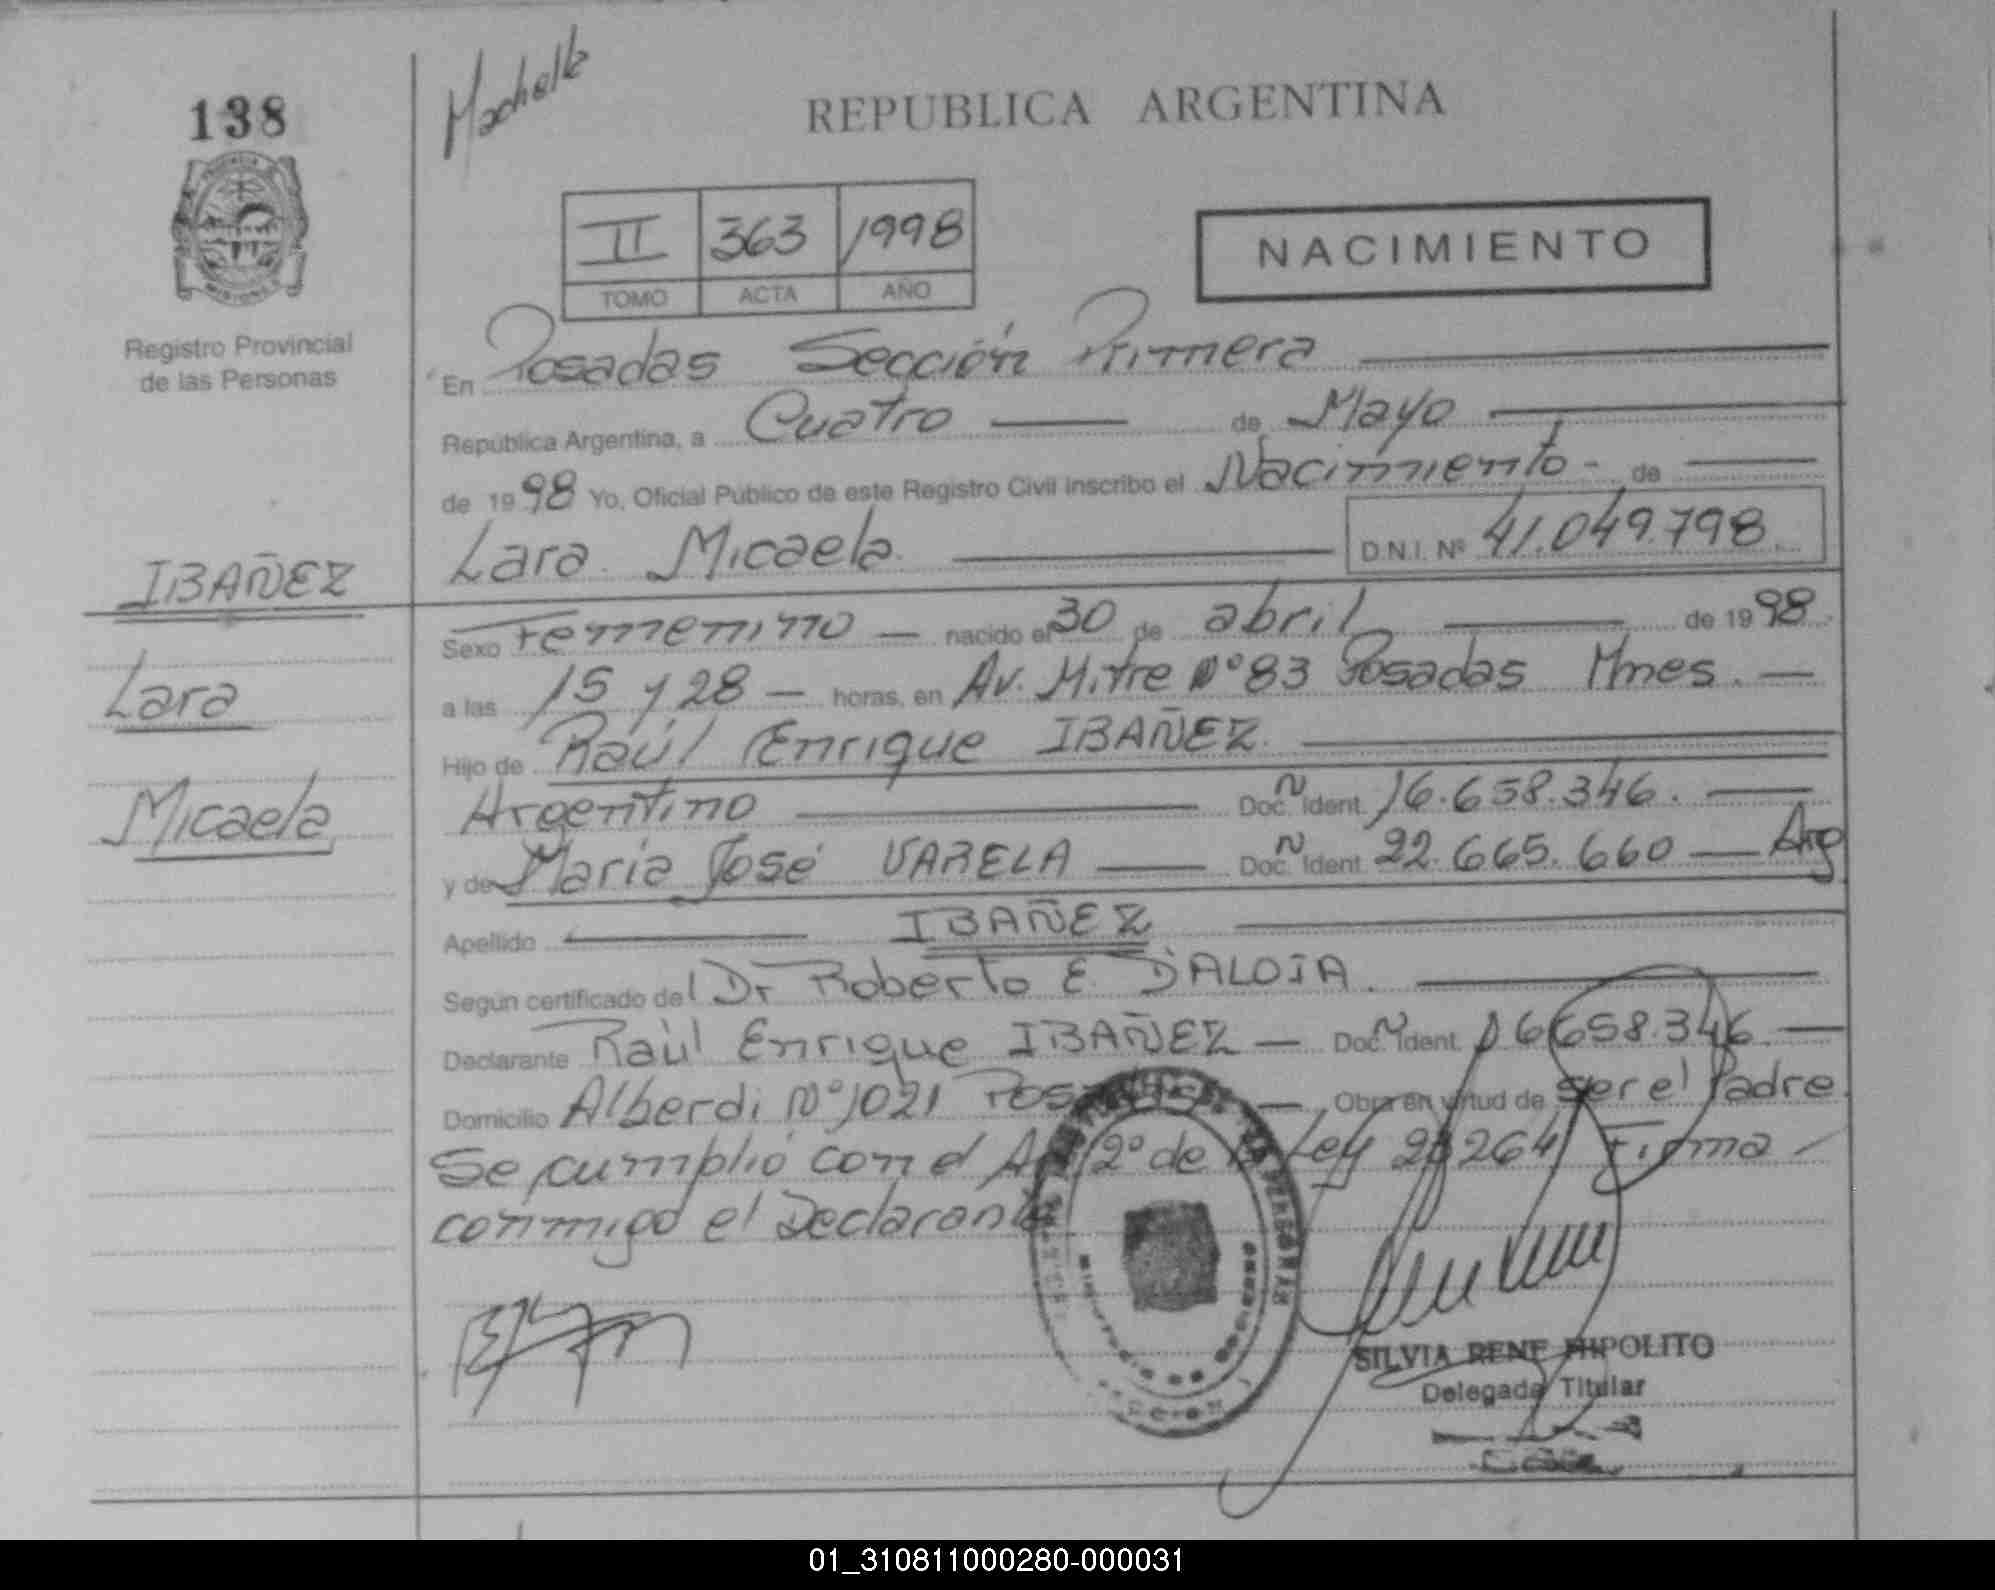 138
REPUBLICA ARGENTINA
II 363 1998
TOMO ACTA AÑO
NACIMIENTO
Registro Provincial
de las Personas
En Posadas Sección Primera
República Argentina, a Cuatro de Mayo
de 1998 Yo, Oficial Público de este Registro Civil inscribo el Nacimiento - de
Lara Micaela D.N.I. Nº 41.049.798
IBAÑEZ
Lara
Micaela
Sexo Femenino nacido el 30 de abril de 1998
a las 15 y 28 horas, en Av. Mitre Nº 83 Posadas Mnes.
Hijo de Raúl Enrique IBAÑEZ
Argentino Doc. Ident. 16.658.346.
y de María José VARELA Doc. Ident. 22.665.660 Arg
Apellido IBAÑEZ
Según certificado del Dr Roberto E. D'ALOIA.
Declarante Raúl Enrique IBAÑEZ Doc. Ident. 16658.346
Domicilio Alberdi Nº 1021 Obra en virtud de ser el Padre.
Se cumplió con el 2º de Ley Firma
conmigo el Declarante
SILVIA RENE HIPOLITO
Delegada Titular
01_310811000280-000031